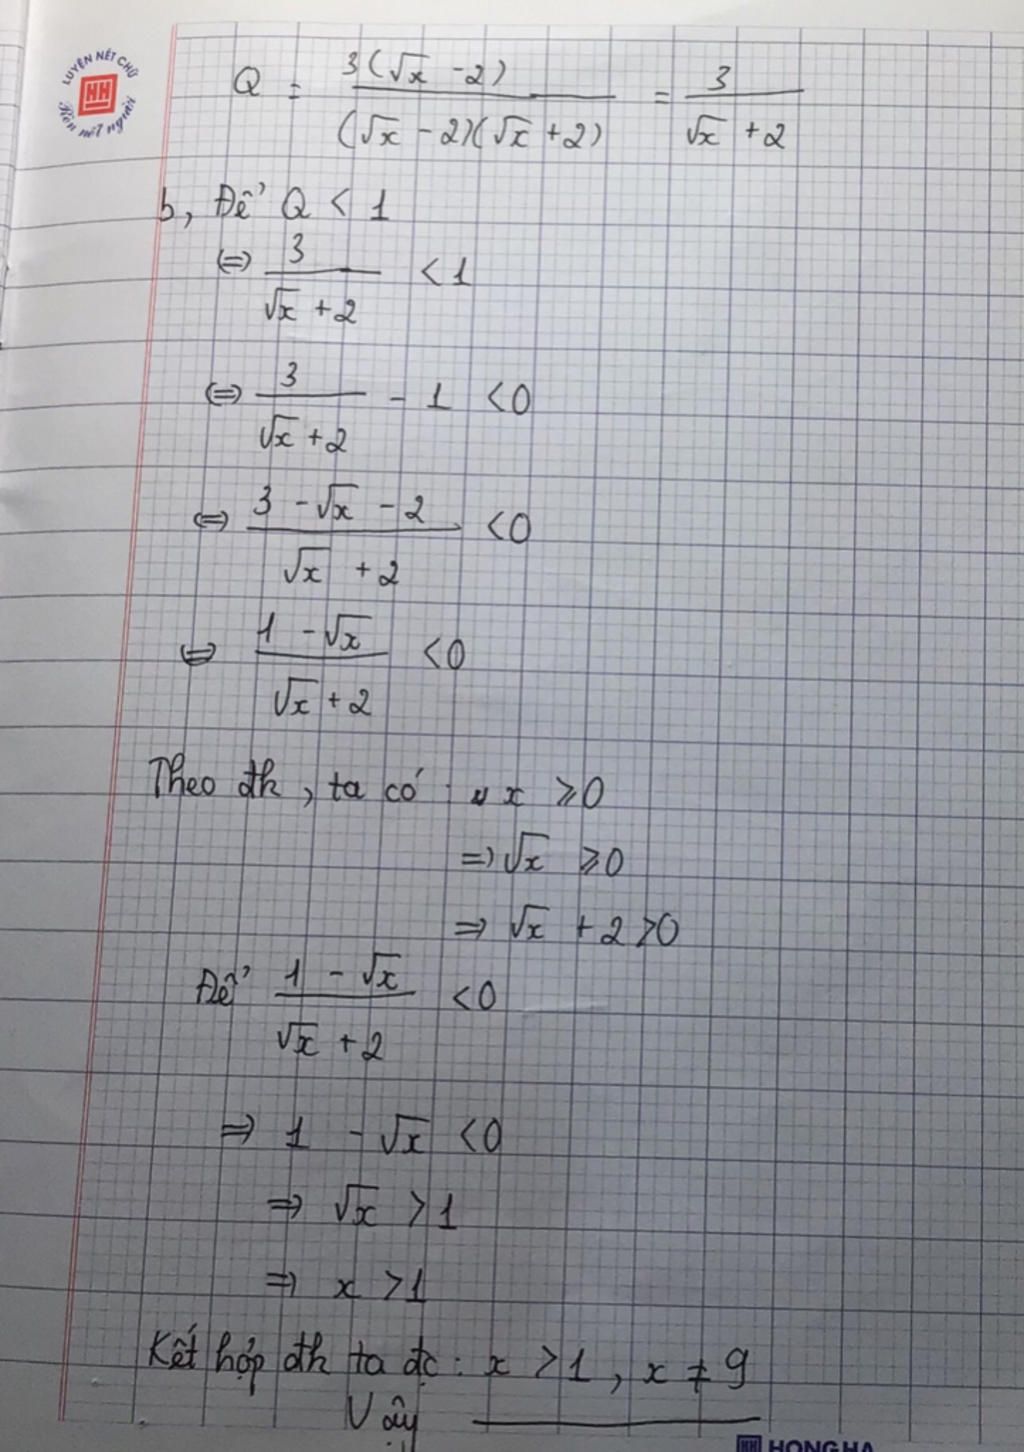 LUYỆN NÉT CHỮ
HH
Rèn nết người
Q = 3(√x - 2) / (√x - 2)(√x + 2) = 3 / √x + 2
b, Để Q < 1
(=) 3 / √x + 2 < 1
(=) 3 / √x + 2 - 1 < 0
(=) 3 - √x - 2 / √x + 2 < 0
(=) 1 - √x / √x + 2 < 0
Theo đk, ta có : x ⩾ 0
=) √x ⩾ 0
=) √x + 2 > 0
Để 1 - √x / √x + 2 < 0
=) 1 - √x < 0
=) √x > 1
=) x > 1
Kết hợp đk ta đc : x > 1, x ≠ 9
Vậy
HH HONG HA